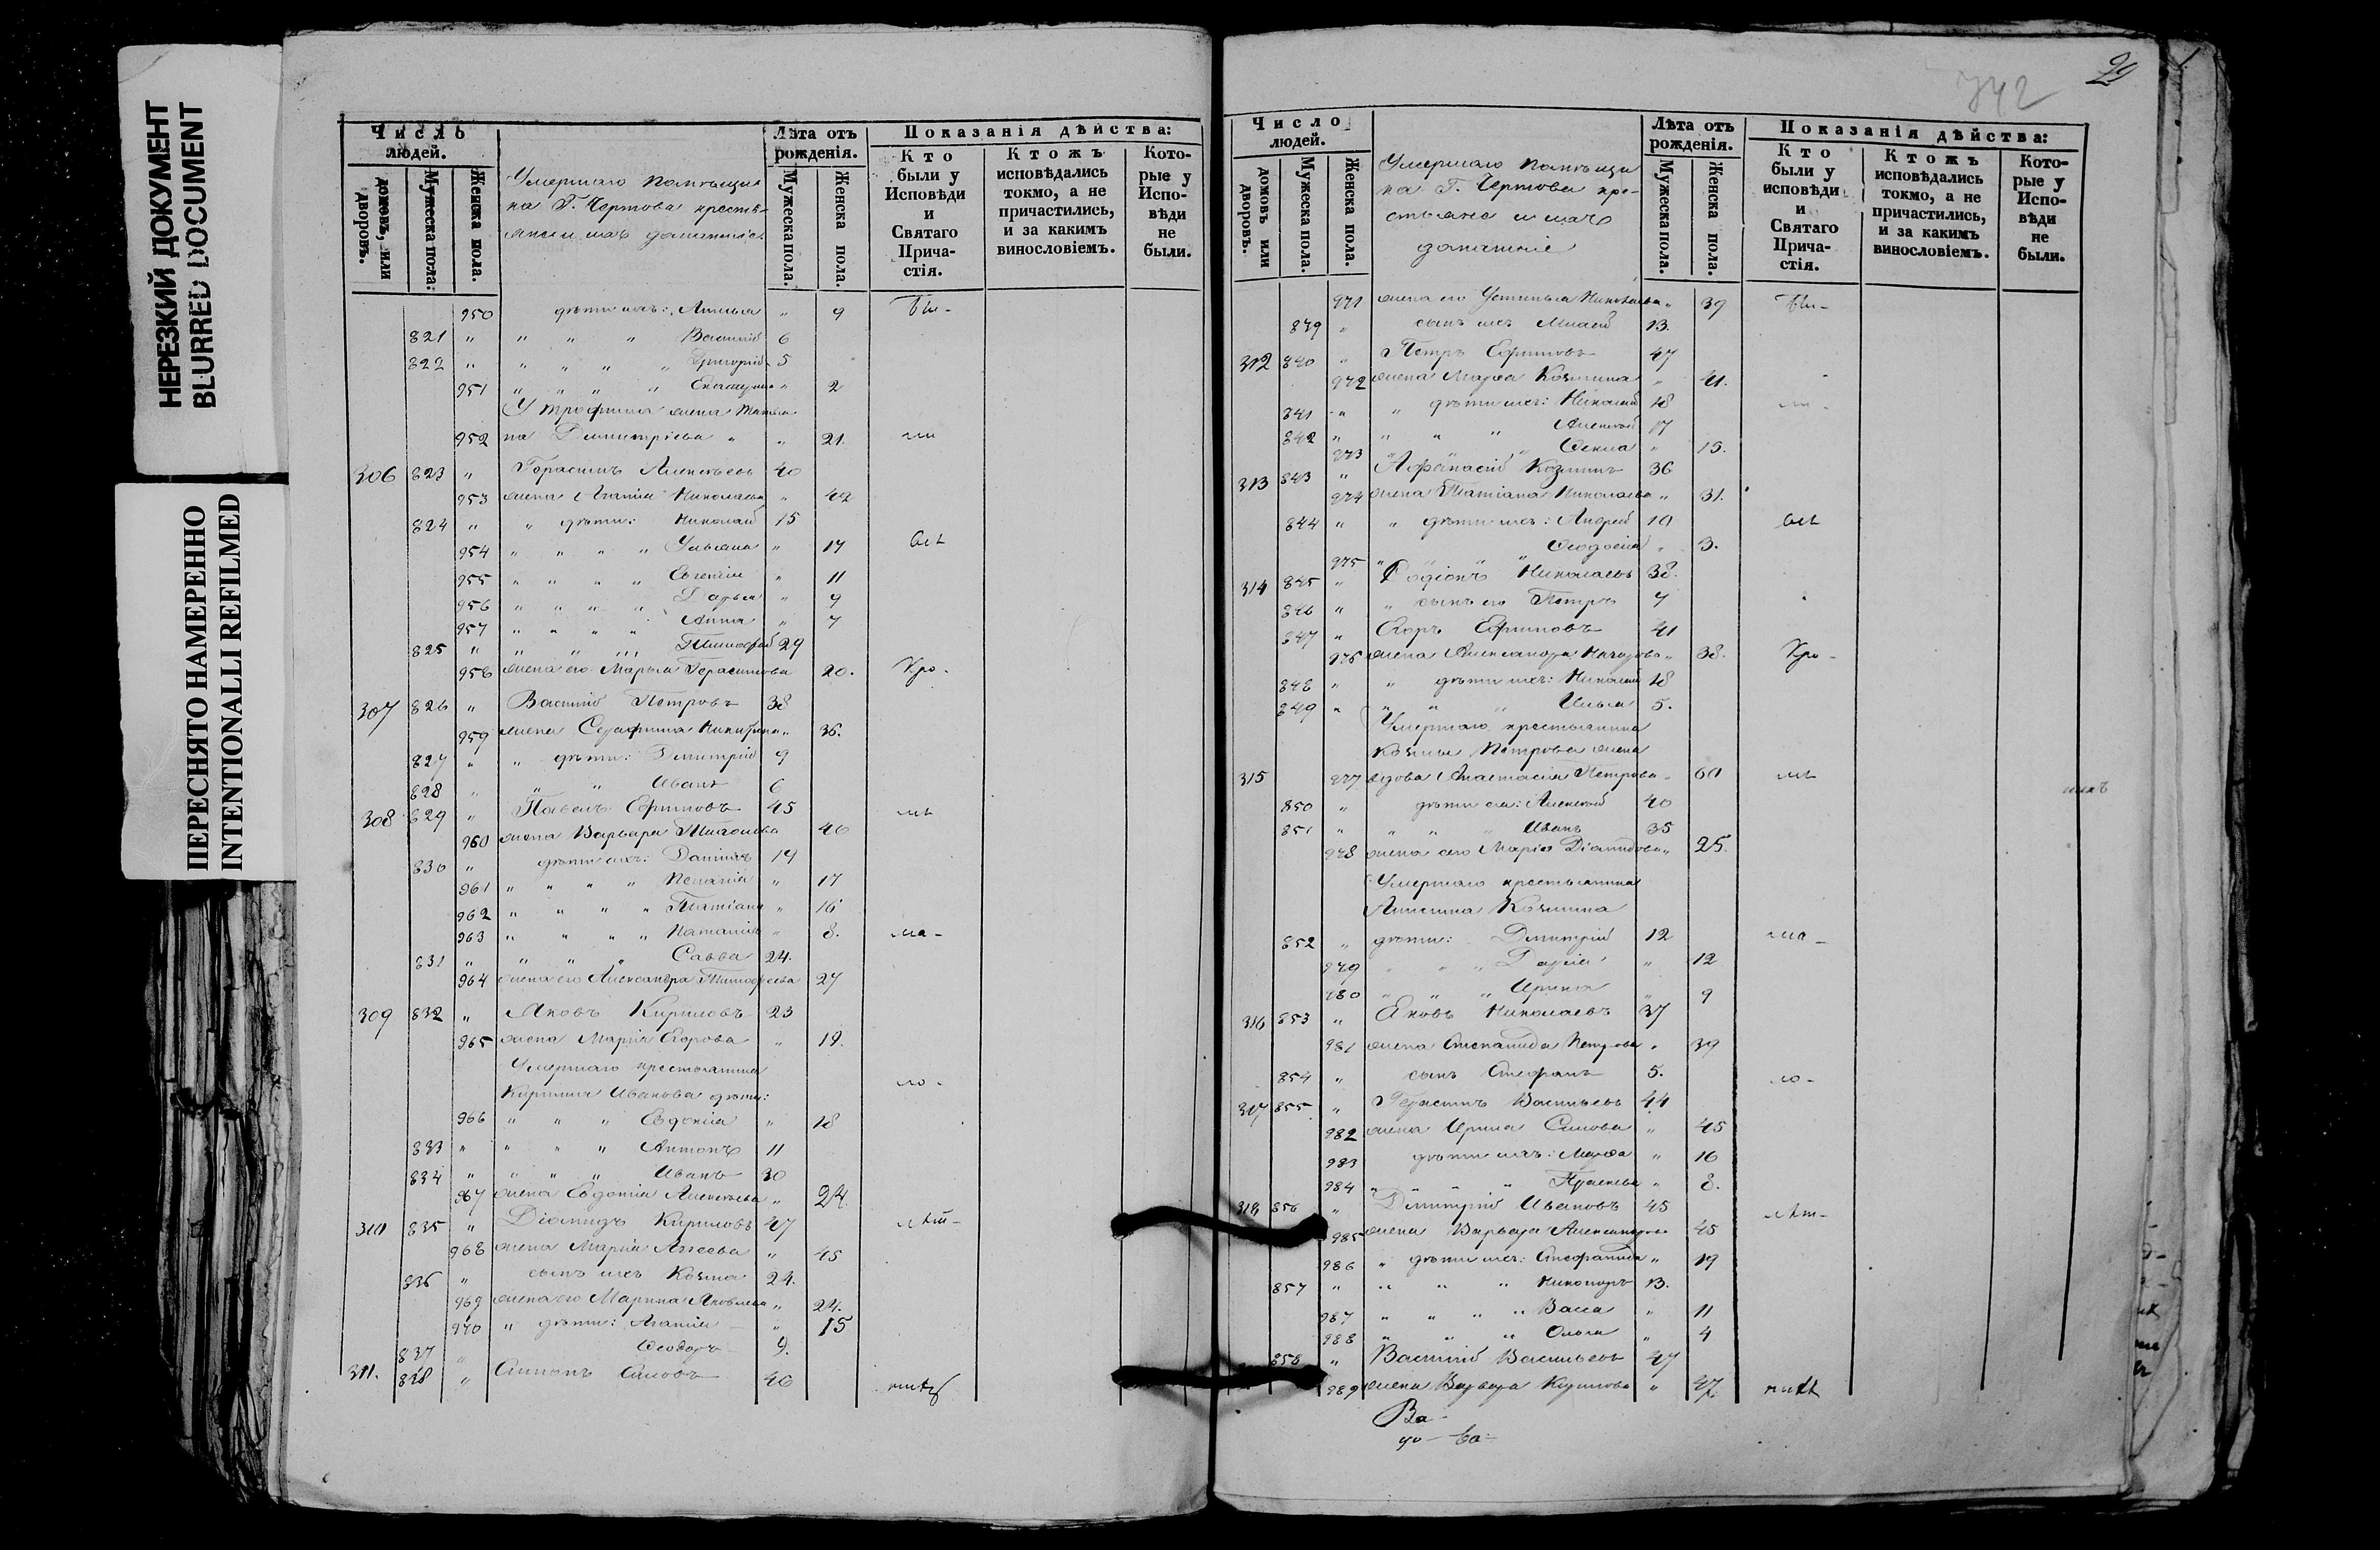 НЕРЕЗКИЙ ДОКУМЕНТ
BLURRED DOCUMENT
ПЕРЕСНЯТО НАМЕРЕННО
INTENTIONALLI REFILMED
Число людей.
домовъ, или дворовъ.
Мужеска пола.
Женска пола.
Умершаго помѣщи-
ка Г. Чертова крестья-
Лѣта отъ рожденія.
Мужеска пола.
Женска пола.
Показанія дѣйства:
Кто были у Исповѣди и Святаго Прича-стія.
Ктожъ исповѣдались токмо, а не причастились, и за какимъ винословіемъ.
Кото-рые у Испо-вѣди не были.
950 дѣти ихъ: 9
821 " " " " Василій 6
822 " " " " " Григорій 5
951 " " " " 2
У Трофима жена
на Димитріева
952 " 21.
306 823 " Герасимъ Алексѣевъ 40
953 жена Агапія Николаева " 42
824 " " дѣти: Николай 15
954 " " " " Ульяна " 17 всѣ
955 " " " " Евгенія " 11
956 " " " " Дарья " 9
957 " " " " Анна " 7
825 " " " " Тимофей 29
958 жена его Марья Герасимова 20. Кро-
307 826 " Василій Петровъ 38
959 жена Серафима " 36.
827 " " дѣти: Димитрій 9
828 " " " Иванъ 6
308 829 " Павелъ Ефимовъ 45
960 жена Варвара 46
830 " дѣти ихъ: Даніилъ 19
961 " " " " " 17
962 " " " " Татіана " 16
963 " " " " Наталія " 8. ма-
831 " " " " Савва 24.
964 жена его Александра Тимофеева 27
309 832 " Яковъ Кириловъ 23
965 жена Марія Егорова " 19.
Умершаго крестьянина
Кирилла Иванова дѣти: ло-
966 " " " Евдокія " 18
833 " " " " Антонъ 11
834 " " " " Иванъ 30
967 жена Евдокія Алексѣева " 24.
310 835 " Діомидъ Кириловъ 47 лѣт-
968 жена Марія " 45
836 " сынъ ихъ Козма 24.
969 жена его Марина Яковлева " 24.
970 " дѣти: Агапія " 15
837 " Ѳеодоръ 9.
311. 838 " 46
342
29
Число людей.
домовъ или дворовъ.
Мужеска пола.
Женска пола.
Умершаго помѣщи
ка Г. Чертова кре-
стьяне и ихъ
домашніе
Лѣта отъ рожденія.
Мужеска пола.
Женска пола.
Показанія дѣйства:
Кто были у исповѣди и Святаго Прича-стія.
Ктожъ исповѣдались токмо, а не причастились, и за какимъ винословіемъ.
Кото-рые у Испо-вѣди не были.
971 жена его Устинья Николаева " 39
839 " сынъ ихъ 13.
312 840 " Петръ Ефимовъ 47
972 жена Марѳа Козмина " 41.
841 " " дѣти ихъ: Николай 18
842 " " " " Алексей 17
973 " " " " 15.
313 843 " Афанасій Козминъ 36
974 жена Татіана Николаева " 31.
844 " " дѣти ихъ: Андрей 10 всѣ
975 " " " Ѳеодосія " 3.
314 845 " Родіонъ Николаевъ 38.
846 " " сынъ его Петръ 7
847 " Егоръ Ефимовъ 41
976 жена Александра " 38. Кро-
848 " " дѣти ихъ: Николай 18
849 " " " " Илья 5.
Умершаго крестьянина
Козмы Петрова жена
315 977 вдова Анастасія Петрова 60
850 " дѣти ея: Алексей 40
851 " " " " Иванъ 35
978 жена его Марія Діомидова " 25.
Умершаго крестьянина
Козмина
852 " дѣти: Димитрій 12 ма-
979 " " " Дарія " 12
980 " " " Ирина " 9
316 853 " Яковъ Николаевъ 37
981 жена Степанида Петрова " 39
854 " сынъ Стефанъ 5. ло-
317 855 " Герасимъ Васильевъ 44
982 жена Ирина " 45
983 дѣти ихъ: Марѳа " 16
984 " " " " " 8.
318 856 " Димитрій Ивановъ 45 лѣт-
985 жена Варвара Александрова 45
986 " дѣти ихъ: Стефанида " 19
857 " " " " Никаноръ 13.
987 " " " " Васса " 11
988 " " " " Ольга " 4
858 " Василій Васильевъ 47
989 жена Варвара Кирилова " 47